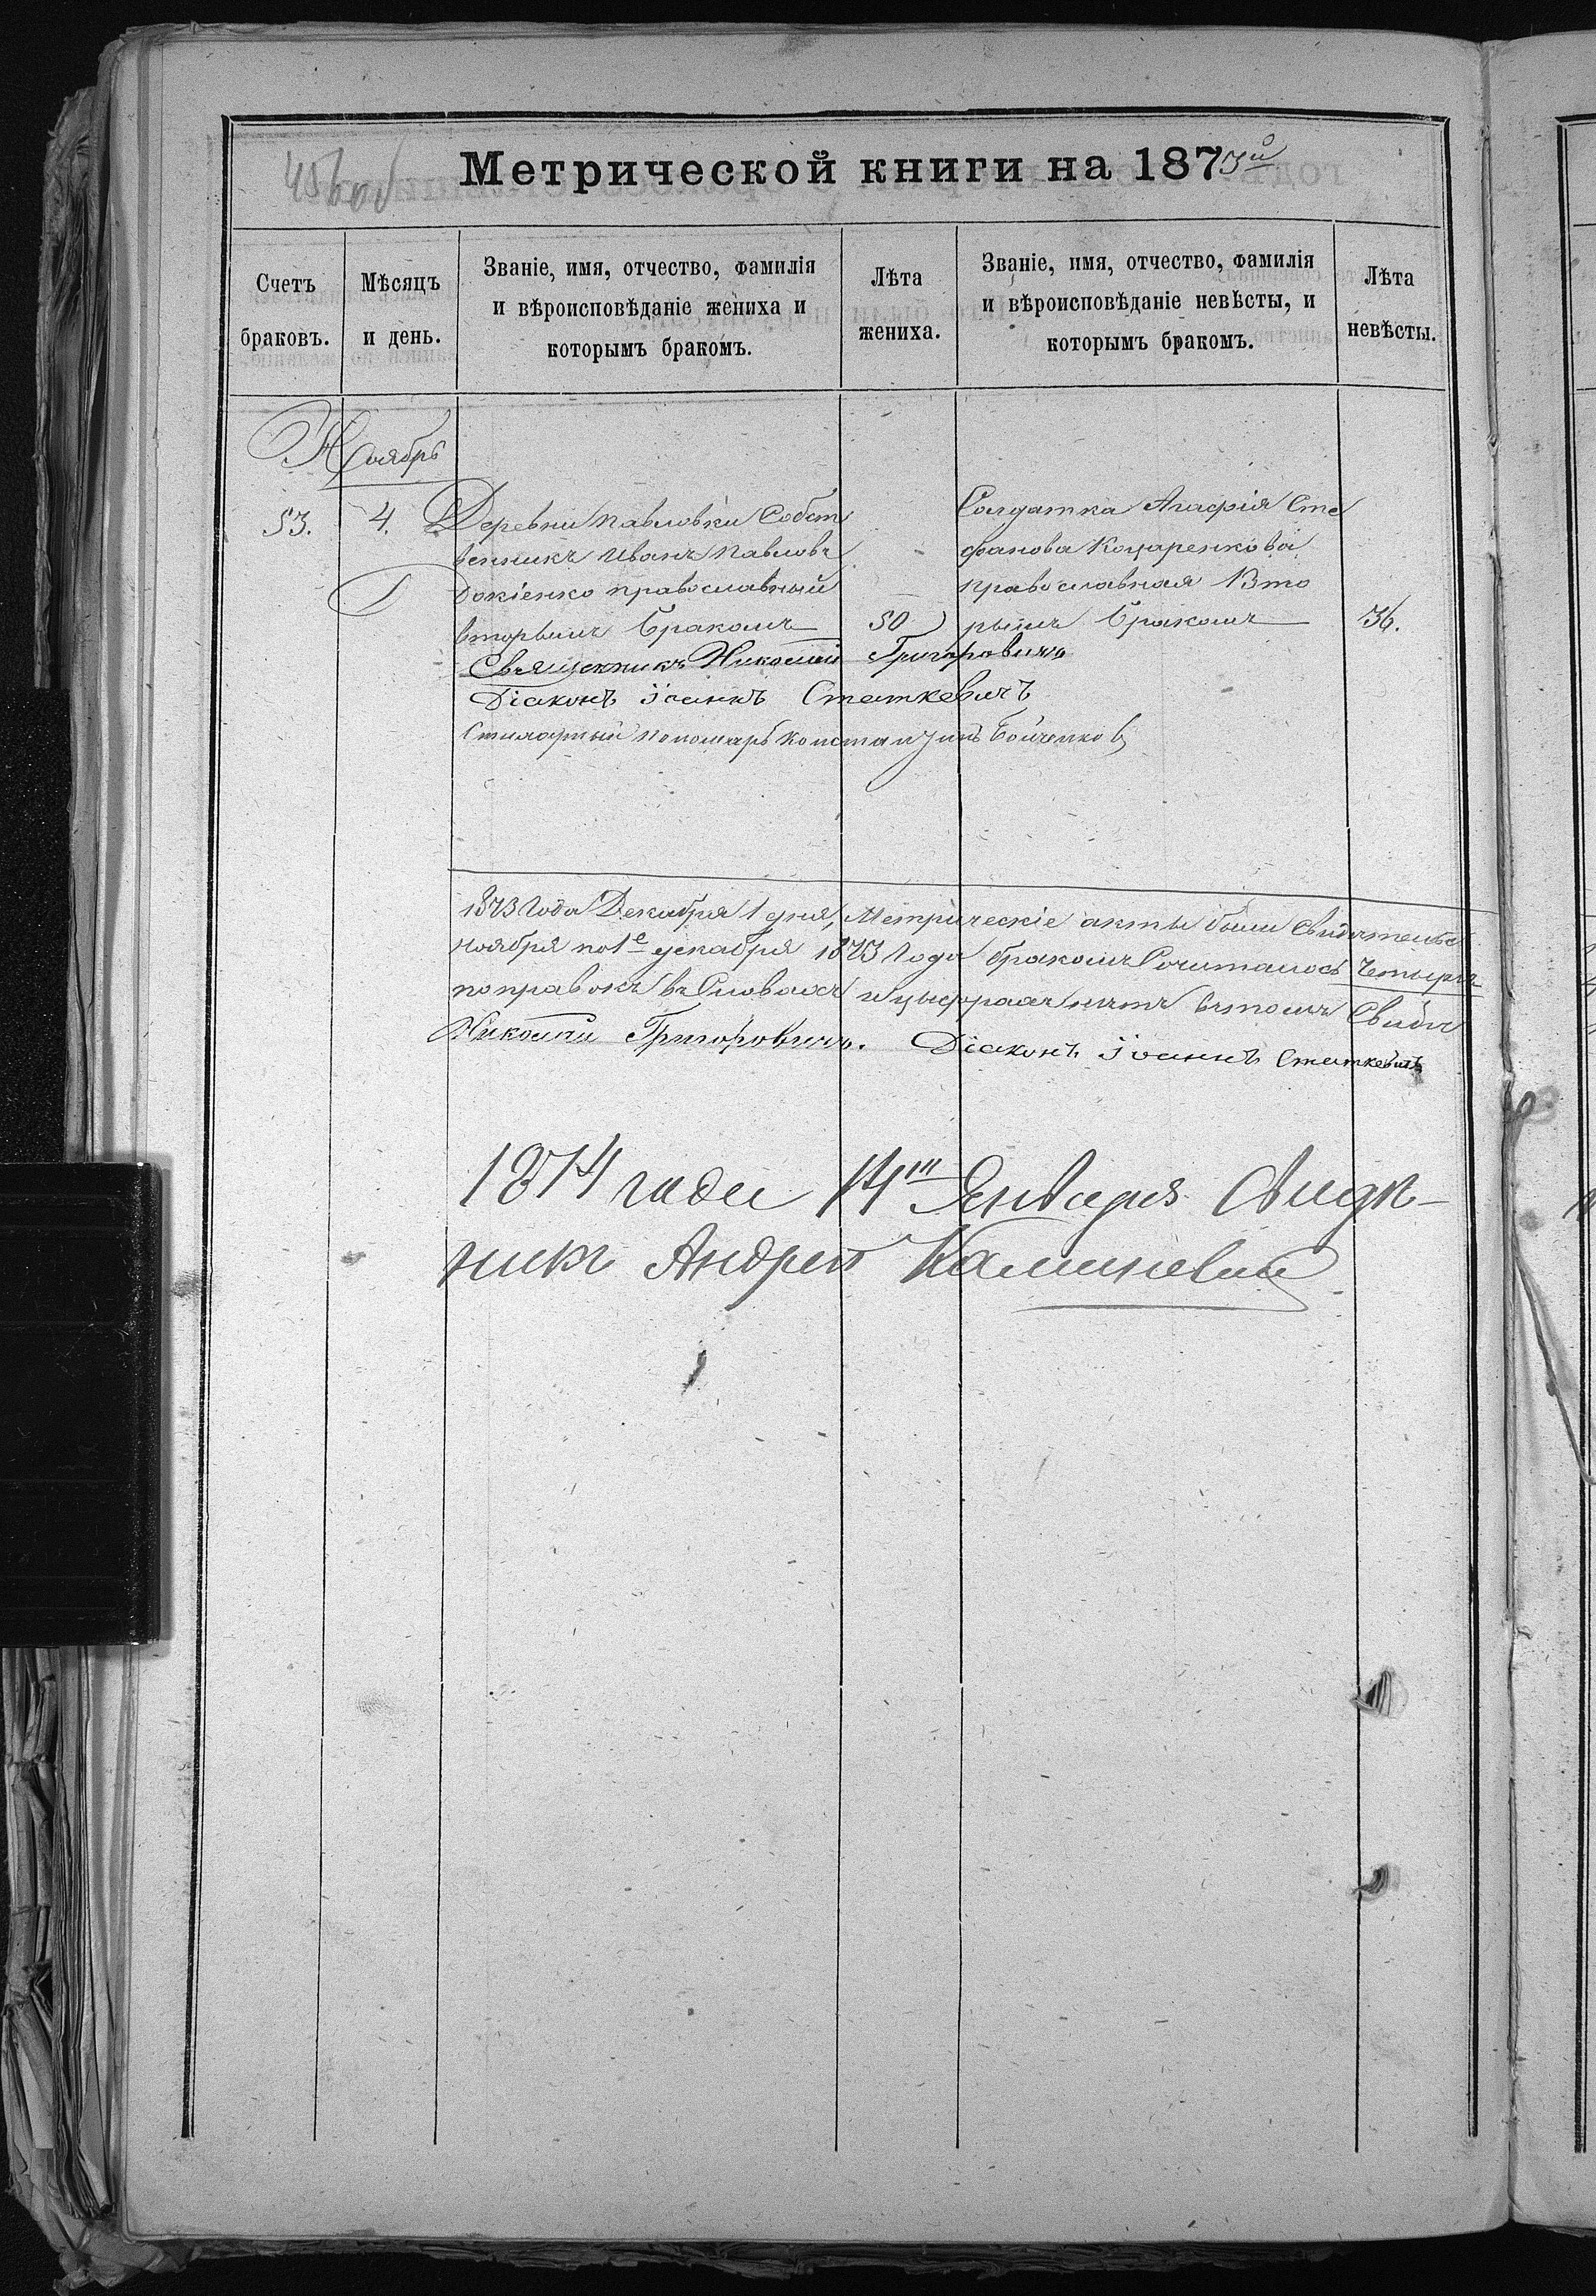 Метрической книги на 1873й
Счетъ браковъ.
Мѣсяцъ и день.
Званіе, имя, отчество, фамилія
и вѣроисповѣданіе жениха и
которымъ бракомъ.
Лѣта жениха.
Званіе, имя, отчество, фамилія
и вѣроисповѣданіе невѣсты, и
которымъ бракомъ.
Лѣта невѣсты.
Ноябрь
53. 4.
Деревни Павловки Собст
венникъ Иванъ Павловъ
Докіенко православный
вторымъ бракомъ
50
Солдатка Агафія Сте
фанова Коцаренкова
православная Вто
рымъ бракомъ
36.
Священникъ Николай Григоровичъ
Діаконъ Іоаннъ Статкевичъ
пономарь Константинъ Бойченко
1873 Года Декабря 1 дня, Метрическіе акты были Свидѣтельс
ноября по 1е декабря 1873 Года бракомъ Сочиталось Четыре
поправокъ въ Словахъ и цыфрахъ нѣтъ въ томъ Свидѣ
Николай Григоровичъ. Діаконъ Іоаннъ Статкевичъ
1874 года 14го Января Свидѣ-
никъ Андрей Калиневич